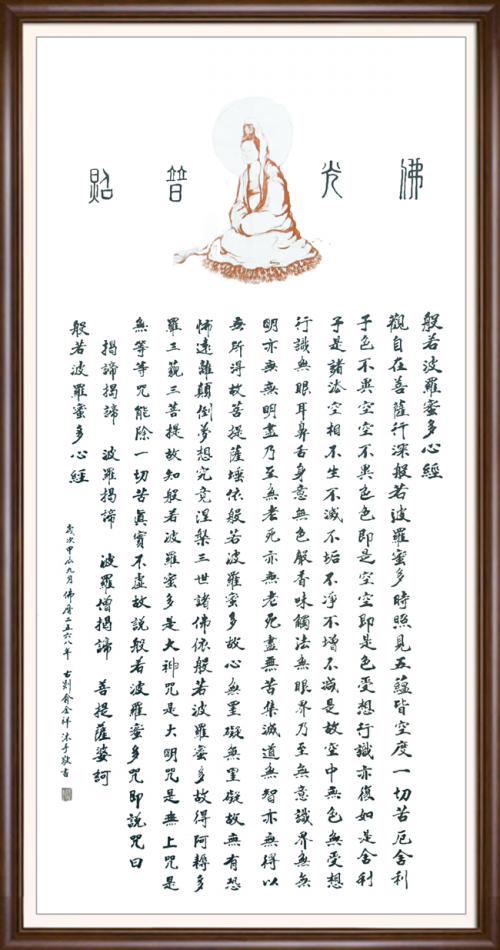 佛光普照
般若波羅蜜多心經
觀自在菩薩行深般若波羅蜜多時照見五蘊皆空度一切苦厄舍利
子色不異空空不異色色即是空空即是色受想行識亦復如是舍利
子是諸法空相不生不滅不垢不淨不增不減是故空中無色無受想
行識無眼耳鼻舌身意無色聲香味觸法無眼界乃至無意識界無無
明亦無無明盡乃至無老死亦無老死盡無苦集滅道無智亦無得以
無所得故菩提薩埵依般若波羅蜜多故心無罣礙無罣礙故無有恐
怖遠離顛倒夢想究竟涅槃三世諸佛依般若波羅蜜多故得阿耨多
羅三藐三菩提故知般若波羅蜜多是大神咒是大明咒是無上咒是
無等等咒能除一切苦眞實不虛故説般若波羅蜜多咒即説咒曰
揭諦揭諦 波羅揭諦 波羅僧揭諦 菩提薩婆訶
般若波羅蜜多心經
歲次甲辰九月 佛曆二五六八年 古剡俞金祥沐手敬書